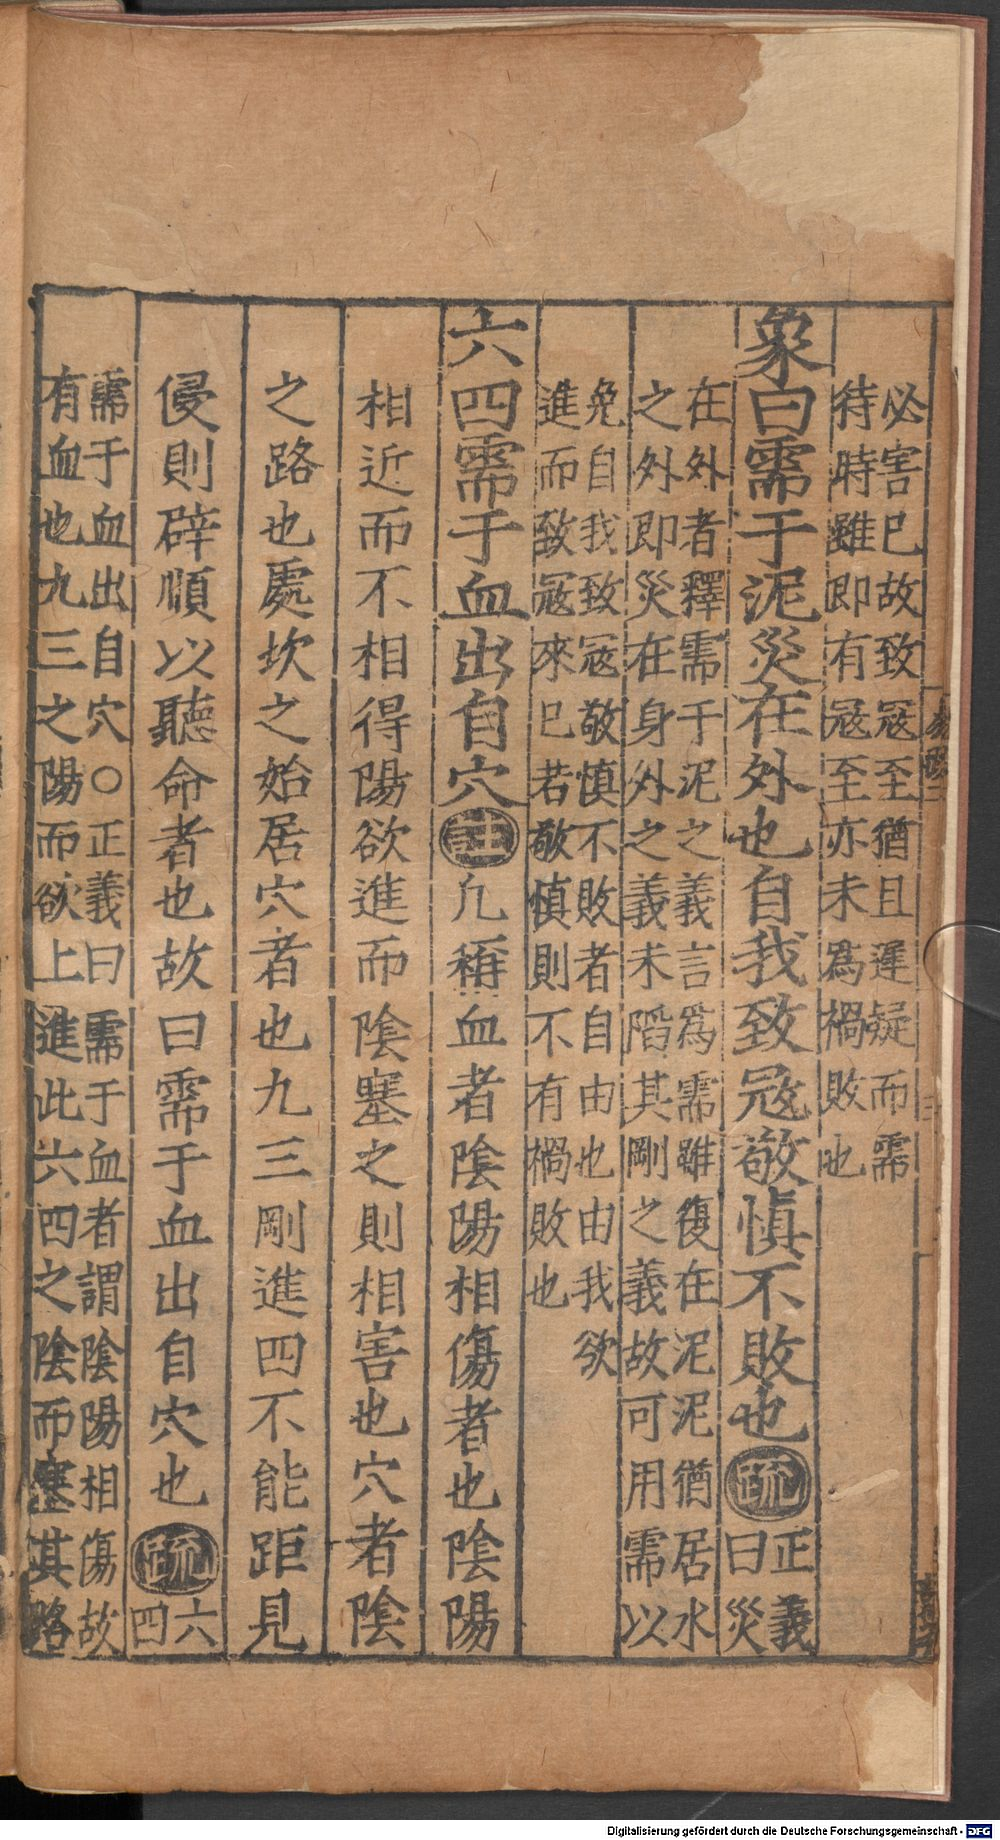 必害巳故致冦至猶且遲疑而需
待時雖即有冦至亦未爲禍敗也
象曰需于泥災在外也自我致冦敬慎不敗也疏正義
曰災
在外者釋需于泥之義言爲需雖復在泥泥猶居水
之外即災在身外之義未陷其剛之義故可用需以
免自我致冦敬慎不敗者自由也由我欲
進而致冦來巳若敬慎則不有禍敗也
六四需于血出自穴註凡稱血者陰陽相傷者也陰陽
相近而不相得陽欲進而陰塞之則相害也穴者陰
之路也處坎之始居穴者也九三剛進四不能距見
侵則辟順以聽命者也故曰需于血出自穴也疏六
四
需于血出自穴○正義曰需于血者謂陰陽相傷故
有血也九三之陽而欲上進此六四之陰而塞其路
Digitalisierung gefördert durch die Deutsche Forschungsgemeinschaft - DFG